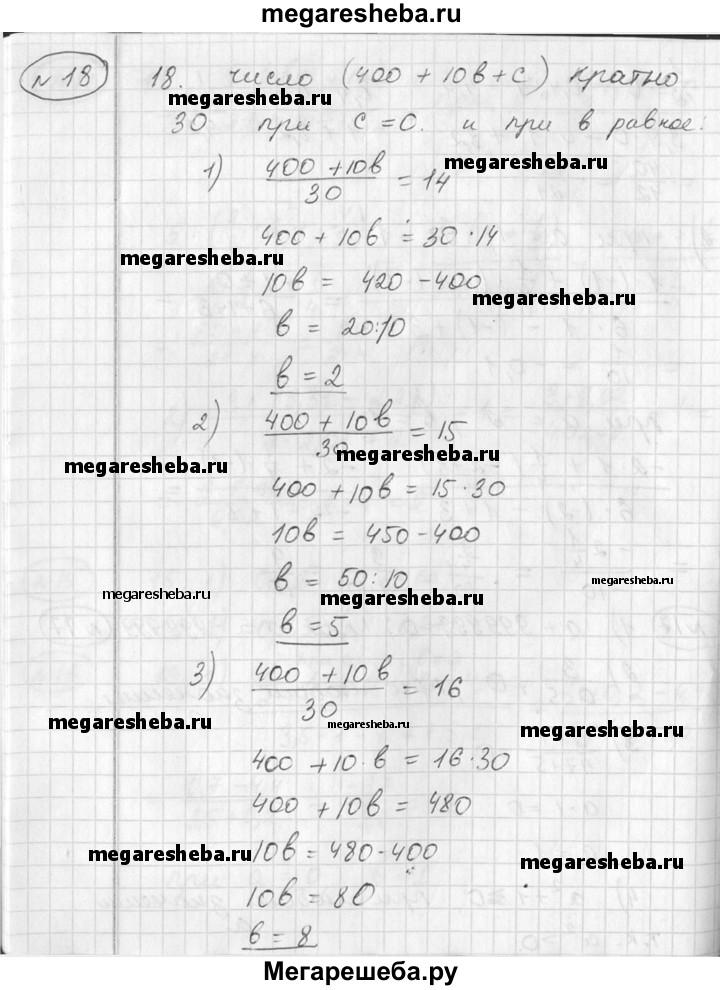 megaresheba.ru
№ 18
18. число (400 + 10в + с) кратно
megaresheba.ru
30 при с = 0. и при в равное:
1) (400 + 10в)/30 = 14
megaresheba.ru
400 + 10в = 30 · 14
megaresheba.ru
10в = 420 - 400
megaresheba.ru
в = 20:10
в = 2
2) (400 + 10в)/30 = 15
megaresheba.ru
megaresheba.ru
400 + 10в = 15 · 30
10в = 450 - 400
в = 50:10
megaresheba.ru
megaresheba.ru
megaresheba.ru
в = 5
3) (400 + 10в)/30 = 16
megaresheba.ru
megaresheba.ru
megaresheba.ru
400 + 10·в = 16·30
400 + 10в = 480
megaresheba.ru
10в = 480 - 400
megaresheba.ru
10в = 80
в = 8
Мегарешеба.ру